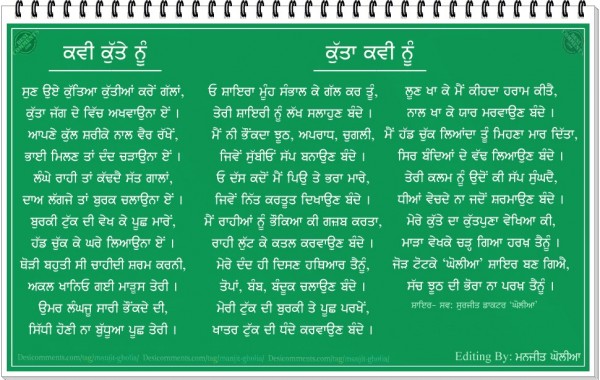 ਕਵੀ ਕੁੱਤੇ ਨੂੰ
ਸੁਣ ਉਏ ਕੁੱਤਿਆ ਕੁੱਤੀਆਂ ਕਰੇਂ ਗੱਲਾਂ,
ਕੁੱਤਾ ਜੱਗ ਦੇ ਵਿੱਚ ਅਖਵਾਉਨਾ ਏਂ ।
ਆਪਣੇ ਕੁੱਲ ਸ਼ਰੀਕੇ ਨਾਲ ਵੈਰ ਰੱਖੇਂ,
ਭਾਈ ਮਿਲਣ ਤਾਂ ਦੰਦ ਚੜਾਉਨਾ ਏਂ ।
ਲੰਘੇ ਰਾਹੀ ਤਾਂ ਕੱਢਦੈ ਸੱਤ ਗਾਲਾਂ,
ਦਾਅ ਲੱਗਜੇ ਤਾਂ ਬੁਰਕ ਚਲਾਉਨਾ ਏਂ ।
ਬੁਰਕੀ ਟੁੱਕ ਦੀ ਵੇਖ ਕੇ ਪੂਛ ਮਾਰੇਂ,
ਹੱਡ ਚੁੱਕ ਕੇ ਘਰੇ ਲਿਆਉਨਾ ਏਂ ।
ਥੋੜੀ ਬਹੁਤੀ ਸੀ ਚਾਹੀਦੀ ਸ਼ਰਮ ਕਰਨੀ,
ਅਕਲ ਖਾਨਿਓਂ ਗਈ ਮਾਰੂਸ ਤੇਰੀ ।
ਉਮਰ ਲੰਘਜੂ ਸਾਰੀ ਭੌਂਕਦੇ ਦੀ,
ਸਿੱਧੀ ਹੋਣੀ ਨਾ ਬੁੱਧੂਆ ਪੂਛ ਤੇਰੀ ।
ਕੁੱਤਾ ਕਵੀ ਨੂੰ
ਓ ਸ਼ਾਇਰਾ ਮੂੰਹ ਸੰਭਾਲ ਕੇ ਗੱਲ ਕਰ ਤੂੰ,
ਤੇਰੀ ਸ਼ਾਇਰੀ ਨੂੰ ਲੱਖ ਸਲਾਹੁਣ ਬੰਦੇ ।
ਮੈਂ ਨੀ ਭੌਂਕਦਾ ਝੂਠ, ਅਪਰਾਧ, ਚੁਗਲੀ,
ਜਿਵੇਂ ਸੁੱਬੀਓਂ ਸੱਪ ਬਨਾਉਣ ਬੰਦੇ ।
ਓ ਦੱਸ ਕਦੋਂ ਮੈਂ ਪਿਉ ਤੇ ਭਰਾ ਮਾਰੇ,
ਜਿਵੇਂ ਨਿੱਤ ਕਰਤੂਤ ਦਿਖਾਉਣ ਬੰਦੇ ।
ਮੈਂ ਰਾਹੀਆਂ ਨੂੰ ਭੌਂਕਿਆ ਕੀ ਗਜ਼ਬ ਕਰਤਾ,
ਰਾਹੀ ਲੁੱਟ ਕੇ ਕਤਲ ਕਰਵਾਉਣ ਬੰਦੇ ।
ਮੇਰੇ ਦੰਦ ਹੀ ਦਿਸਣ ਹਥਿਆਰ ਤੈਨੂੰ,
ਤੋਪਾਂ, ਬੰਬ, ਬੰਦੂਕ ਚਲਾਉਣ ਬੰਦੇ ।
ਮੇਰੀ ਟੁੱਕ ਦੀ ਬੁਰਕੀ ਤੇ ਪੂਛ ਪਰਖੇਂ,
ਖਾਤਰ ਟੁੱਕ ਦੀ ਧੰਦੇ ਕਰਵਾਉਣ ਬੰਦੇ ।
ਲੂਣ ਖਾ ਕੇ ਮੈਂ ਕੀਹਦਾ ਹਰਾਮ ਕੀਤੈ,
ਨਾਲ ਖਾ ਕੇ ਯਾਰ ਮਰਵਾਉਣ ਬੰਦੇ ।
ਮੈਂ ਹੱਡ ਚੁੱਕ ਲਿਆਂਦਾ ਤੂੰ ਮਿਹਣਾ ਮਾਰ ਦਿੱਤਾ,
ਸਿਰ ਬੰਦਿਆਂ ਦੇ ਵੱਢ ਲਿਆਉਣ ਬੰਦੇ ।
ਤੇਰੀ ਕਲਮ ਨੂੰ ਉਦੋਂ ਕੀ ਸੱਪ ਸੁੰਘਦੈ,
ਧੀਆਂ ਵੇਚਦੇ ਨਾ ਜਦੋਂ ਸ਼ਰਮਾਉਣ ਬੰਦੇ ।
ਮੇਰੇ ਕੁੱਤੇ ਦਾ ਕੁੱਤਪੁਣਾ ਵੇਖਿਆ ਕੀ,
ਮਾੜਾ ਵੇਖਕੇ ਚੜ੍ਹ ਗਿਆ ਹਰਖ਼ ਤੈਨੂੰ ।
ਜੋੜ ਟੋਟਕੇ 'ਘੋਲੀਆ' ਸ਼ਾਇਰ ਬਣ ਗਿਐਂ,
ਸੱਚ ਝੂਠ ਦੀ ਭੋਰਾ ਨਾ ਪਰਖ ਤੈਨੂੰ ।
ਸ਼ਾਇਰ– ਸਵ: ਸੁਰਜੀਤ ਡਾਕਟਰ 'ਘੋਲੀਆ'
Desicomments.com/tag/manjit-gholia/ Desicomments.com/tag/manjit-gholia/ Desicomments.com/tag/manjit-gholia/
Editing By: ਮਨਜੀਤ ਘੋਲੀਆ